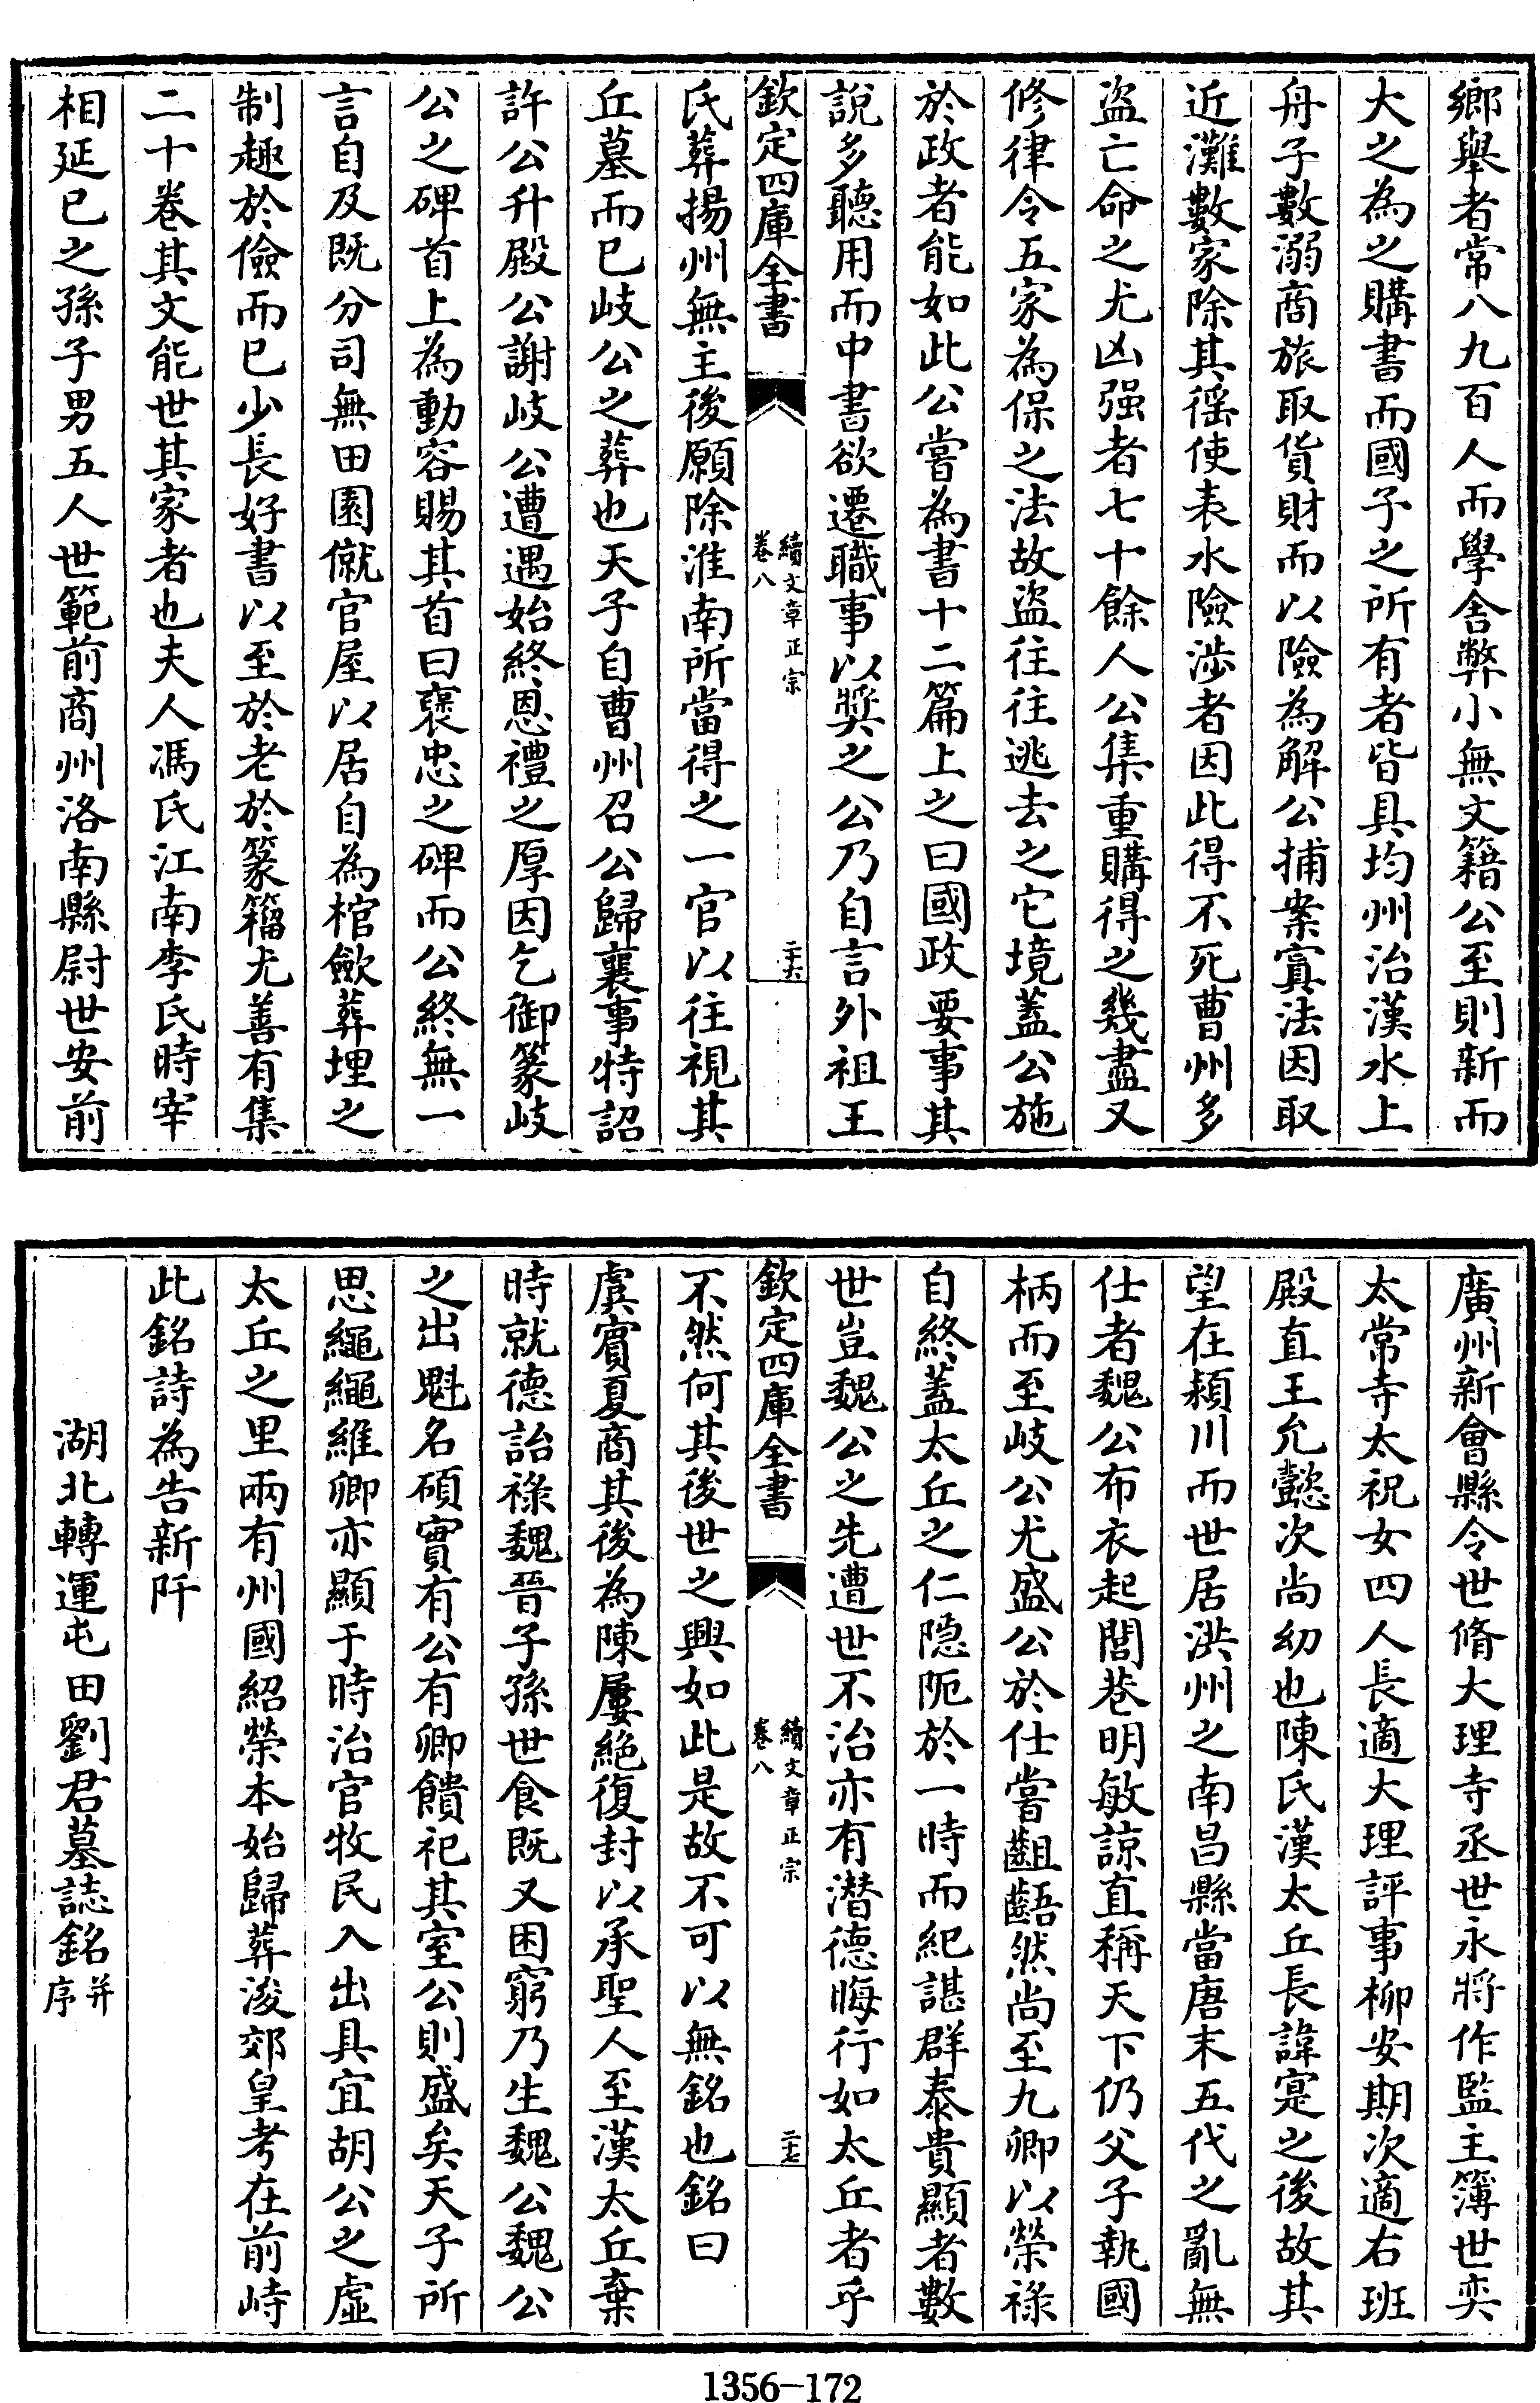 鄉舉者常八九百人而學舍弊小無文籍公至則新而
大之為之購書而國子之所有者皆具均州治漢水上
舟子數溺商旅取貨財而以險為解公捕案寘法因取
近灘數家除其徭使表水險涉者因此得不死曹州多
盜亡命之尤凶强者七十餘人公集重購得之幾盡又
修律令五家為保之法故盜往往逃去之它境蓋公施
於政者能如此公嘗為書十二篇上之曰國政要事其
說多聽用而中書欲遷職事以獎之公乃自言外祖王
欽定四庫全書
續文章正宗
卷八
二十六
氏葬揚州無主後願除淮南所當得之一官以往視其
丘墓而已岐公之葬也天子自曹州召公歸襄事特詔
許公升殿公謝岐公遭遇始終恩禮之厚因乞御篆岐
公之碑首上為動容賜其首曰褒忠之碑而公終無一
言自及既分司無田園僦官屋以居自為棺歛葬埋之
制趣於儉而已少長好書以至於老於篆籀尤善有集
二十卷其文能世其家者也夫人馮氏江南李氏時宰
相延巳之孫子男五人世範前商州洛南縣尉世安前
廣州新會縣令世脩大理寺丞世永將作監主簿世奕
太常寺太祝女四人長適大理評事柳安期次適右班
殿直王允懿次尚幼也陳氏漢太丘長諱寔之後故其
望在潁川而世居洪州之南昌縣當唐末五代之亂無
仕者魏公布衣起閭巷明敏諒直稱天下仍父子執國
柄而至岐公尤盛公於仕嘗齟齬然尚至九卿以榮祿
自終蓋太丘之仁隱阨於一時而紀諶群泰貴顯者數
世豈魏公之先遭世不治亦有潛德晦行如太丘者乎
欽定四庫全書
續文章正宗
卷八
二十七
不然何其後世之興如此是故不可以無銘也銘曰
虞賓夏商其後為陳屢絕復封以承聖人至漢太丘棄
時就德詒祿魏晉子孫世食既又困窮乃生魏公魏公
之出魁名碩實有公有卿饋祀其室公則盛矣天子所
思繩繩維卿亦顯于時治官牧民入出具宜胡公之虛
太丘之里兩有州國紹榮本始歸葬浚郊皇考在前峙
此銘詩為告新阡
湖北轉運屯田劉君墓誌銘并序
1356-172